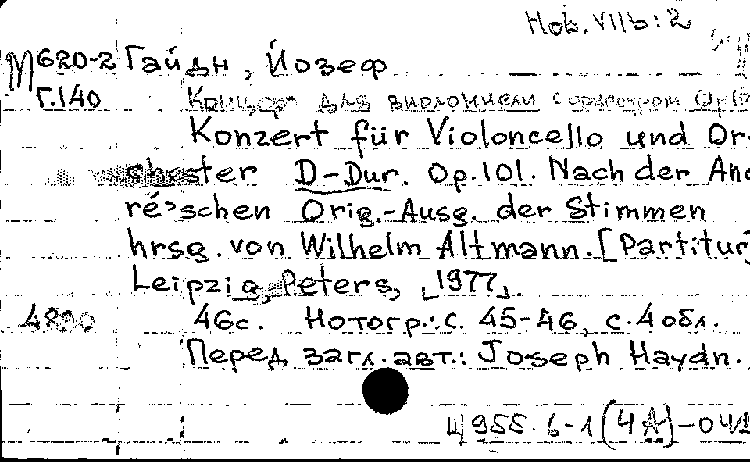 Hob. VIIb: 2
М620-2 Гайдн, Йозеф
Г.140 Концерт для виолончели с оркестром Op.
Konzert für Violoncello und Or-
chester D-Dur. Op. 101. Nach der And
ré'schen Orig.-Ausg. der Stimmen
hrsg. von Wilhelm Altmann. [Partitur]
Leipzig, Peters, [1977].
46с. Нотогр.: с. 45-46, с. 4 обл.
Перед загл. авт.: Joseph Haydn.
Ц 955 6-1(4А)-041